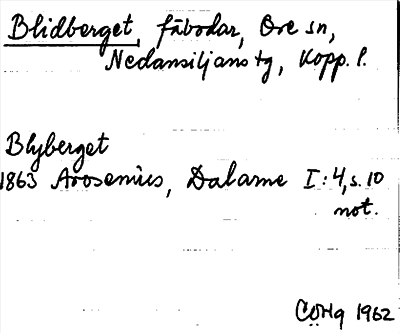 Blidberget, fäbodar, Ore sn,
Nedansiljans tg, Kopp. l.
Blyberget
1863 Arosenius, Dalarne I:4, s. 10
not.
CÖHg 1962